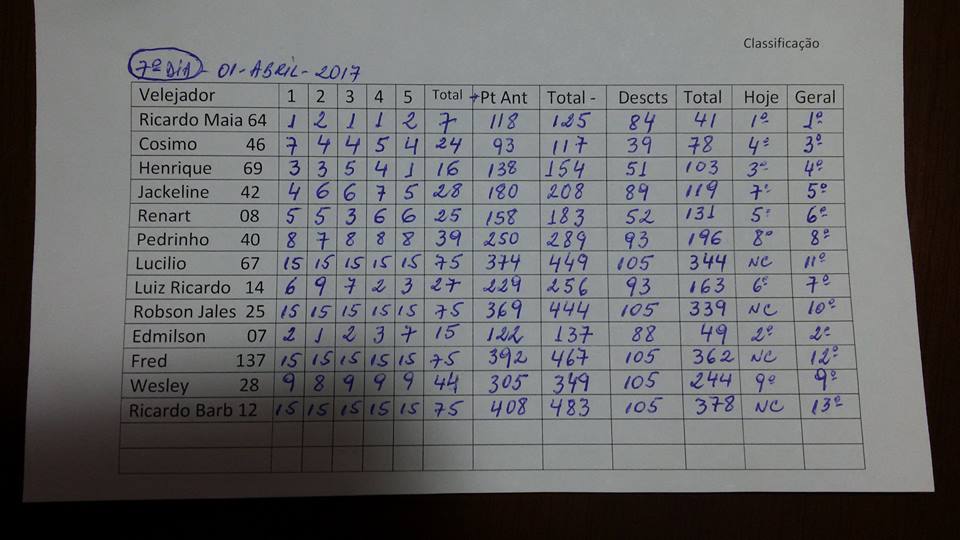 Classificação
7º DIA - 01 - ABRIL - 2017
Velejador 1 2 3 4 5 Total →Pt Ant Total - Descts Total Hoje Geral
Ricardo Maia 64 1 2 1 1 2 7 118 125 84 41 1º 1º
Cosimo 46 7 4 4 5 4 24 93 117 39 78 4º 3º
Henrique 69 3 3 5 4 1 16 138 154 51 103 3º 4º
Jackeline 42 4 6 6 7 5 28 180 208 89 119 7º 5º
Renart 08 5 5 3 6 6 25 158 183 52 131 5º 6º
Pedrinho 40 8 7 8 8 8 39 250 289 93 196 8º 8º
Lucilio 67 15 15 15 15 15 75 374 449 105 344 NC 11º
Luiz Ricardo 14 6 9 7 2 3 27 229 256 93 163 6º 7º
Robson Jales 25 15 15 15 15 15 75 369 444 105 339 NC 10º
Edmilson 07 2 1 2 3 7 15 122 137 88 49 2º 2º
Fred 137 15 15 15 15 15 75 392 467 105 362 NC 12º
Wesley 28 9 8 9 9 9 44 305 349 105 244 9º 9º
Ricardo Barb 12 15 15 15 15 15 75 408 483 105 378 NC 13º